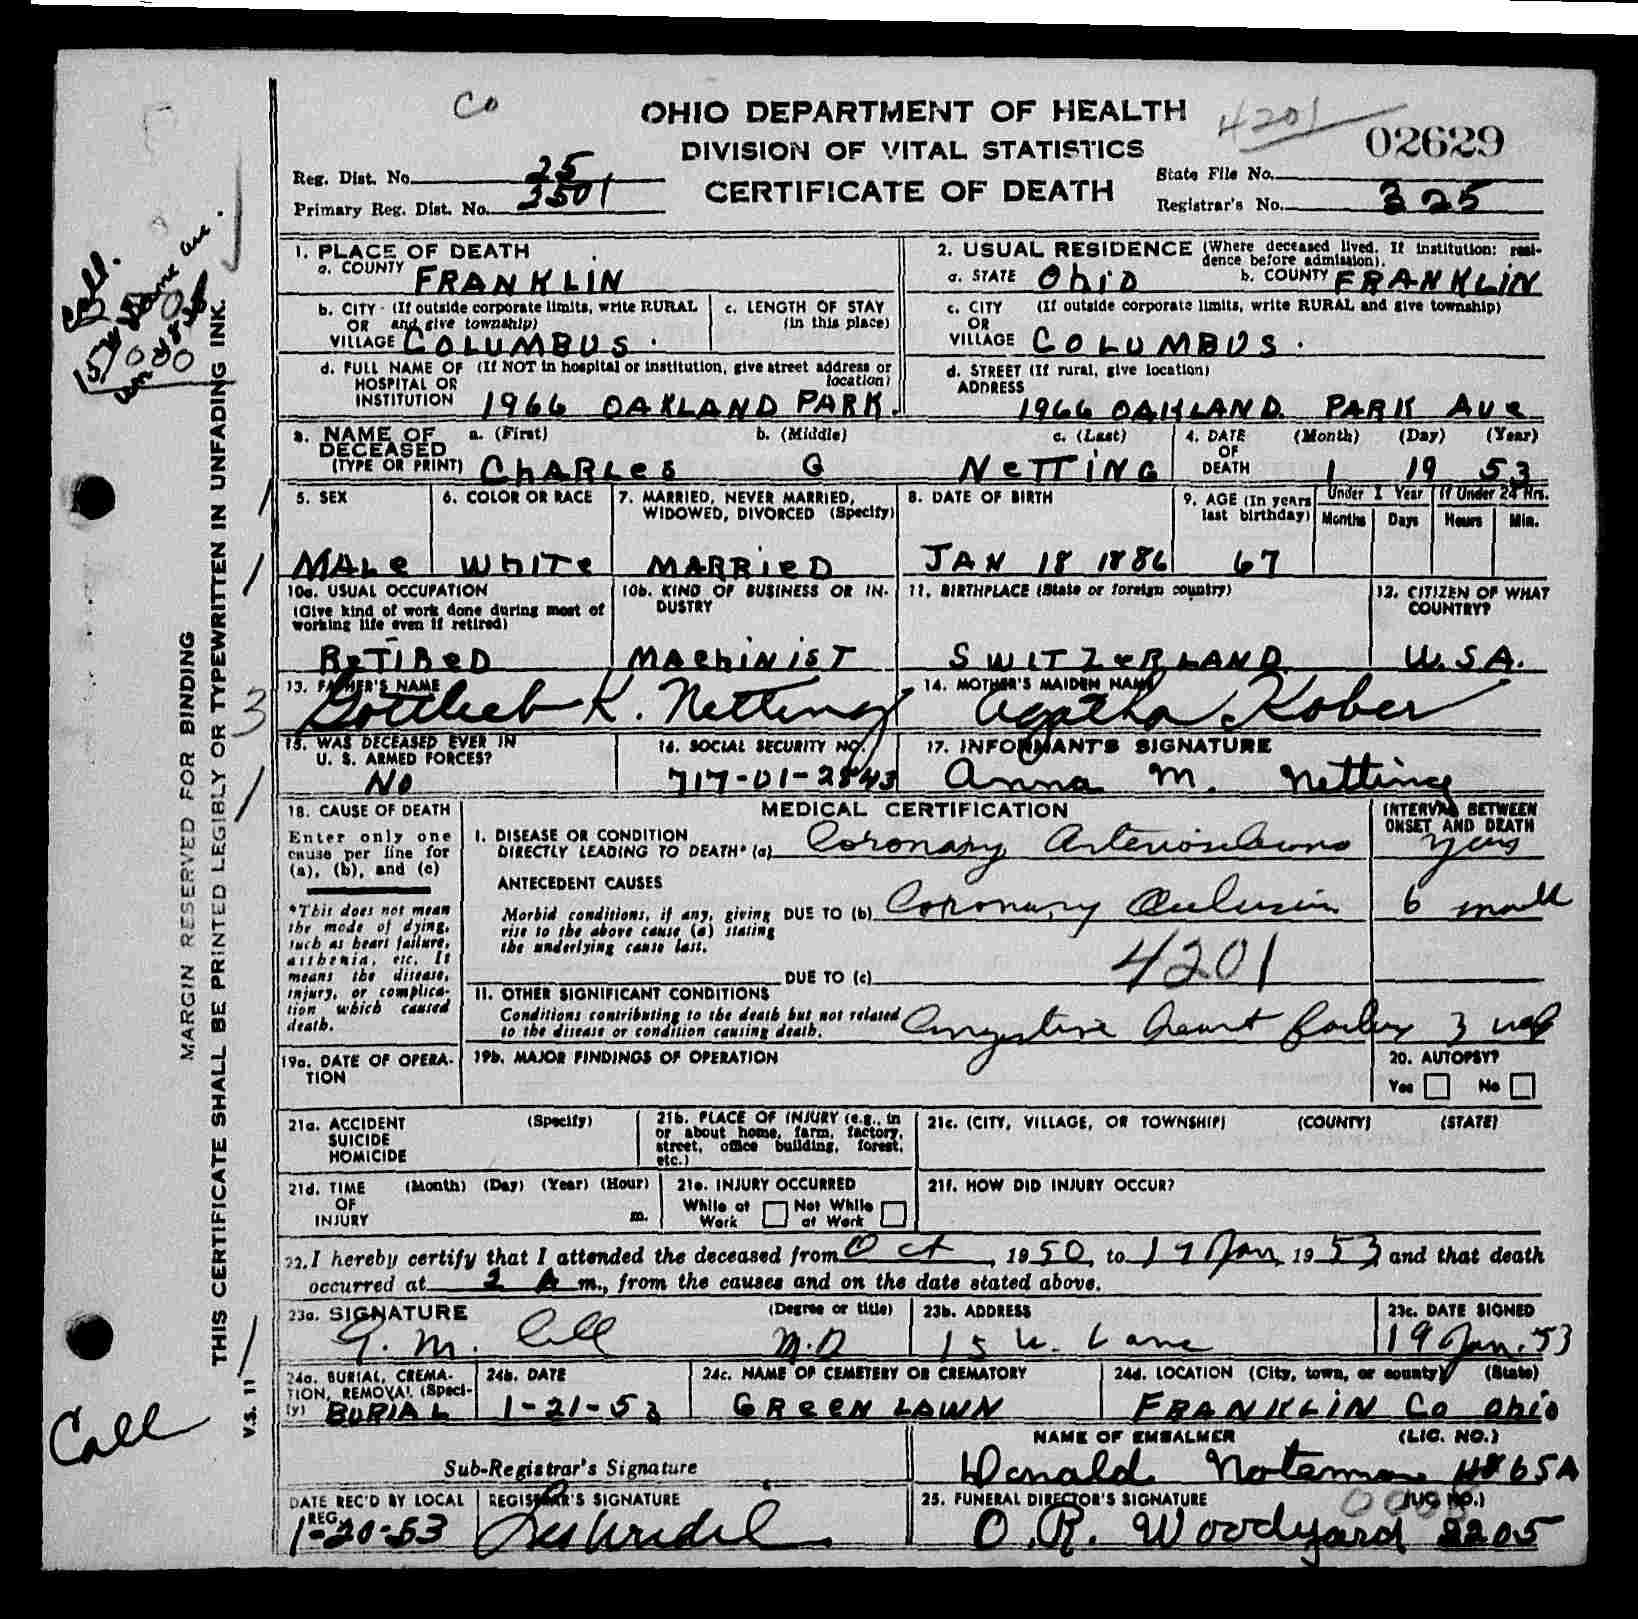 Co
OHIO DEPARTMENT OF HEALTH
4201
02629
DIVISION OF VITAL STATISTICS
CERTIFICATE OF DEATH
Reg. Dist. No. 25
Primary Reg. Dist. No. 2501
State File No.
Registrar's No. 325
1. PLACE OF DEATH
a. COUNTY FRANKLIN
b. CITY (If outside corporate limits, write RURAL
OR and give township)
VILLAGE COLUMBUS.
c. LENGTH OF STAY
(in this place)
d. FULL NAME OF (If NOT in hospital or institution, give street address or
HOSPITAL OR location)
INSTITUTION 1966 OAKLAND PARK.
2. USUAL RESIDENCE (Where deceased lived. If institution: resi-
dence before admission).
a. STATE Ohio b. COUNTY FRANKLIN
c. CITY (If outside corporate limits, write RURAL and give township)
OR
VILLAGE COLUMBUS.
d. STREET (If rural, give location)
ADDRESS
1966 OAKLAND PARK Ave
3. NAME OF a. (First) b. (Middle) c. (Last)
DECEASED
(TYPE OR PRINT) CHARLES G NETTING
4. DATE (Month) (Day) (Year)
OF
DEATH 1 19 53
5. SEX
MALE
6. COLOR OR RACE
WHITE
7. MARRIED, NEVER MARRIED,
WIDOWED, DIVORCED (Specify)
MARRIED
8. DATE OF BIRTH
JAN 18 1886
9. AGE (In years
last birthday)
67
Under 1 Year
Months Days
If Under 24 Hrs.
Hours Min.
10a. USUAL OCCUPATION
(Give kind of work done during most of
working life even if retired)
RETIRED
10b. KIND OF BUSINESS OR IN-
DUSTRY
MACHINIST
11. BIRTHPLACE (State or foreign country)
SWITZERLAND
12. CITIZEN OF WHAT
COUNTRY?
U.S.A.
13. FATHER'S NAME
Gottlieb K. Netting
14. MOTHER'S MAIDEN NAME
Agatha Kober
15. WAS DECEASED EVER IN
U. S. ARMED FORCES?
NO
16. SOCIAL SECURITY NO.
717-01-2843
17. INFORMANT'S SIGNATURE
Anna M. Netting
18. CAUSE OF DEATH
Enter only one
cause per line for
(a), (b), and (c)
*This does not mean
the mode of dying,
such as heart failure,
asthenia, etc. It
means the disease,
injury, or complica-
tion which caused
death.
MEDICAL CERTIFICATION
INTERVAL BETWEEN
ONSET AND DEATH
I. DISEASE OR CONDITION
DIRECTLY LEADING TO DEATH* (a) Coronary Arteriosclerosis years
ANTECEDENT CAUSES
Morbid conditions, if any, giving DUE TO (b) Coronary Occlusion 6 month
rise to the above cause (a) stating
the underlying cause last.
4201
DUE TO (c)
II. OTHER SIGNIFICANT CONDITIONS
Conditions contributing to the death but not related
to the disease or condition causing death.
Congestive heart failure 3
19a. DATE OF OPERA-
TION
19b. MAJOR FINDINGS OF OPERATION
20. AUTOPSY?
Yes No
21a. ACCIDENT (Specify)
SUICIDE
HOMICIDE
21b. PLACE OF INJURY (e.g., in
or about home, farm, factory,
street, office building, forest,
etc.)
21c. (CITY, VILLAGE, OR TOWNSHIP) (COUNTY) (STATE)
21d. TIME (Month) (Day) (Year) (Hour)
OF
INJURY m.
21e. INJURY OCCURRED
While at Not While
Work at Work
21f. HOW DID INJURY OCCUR?
22. I hereby certify that I attended the deceased from Oct, 1950, to 19 Jan, 1953 and that death
occurred at 2 A m., from the causes and on the date stated above.
23a. SIGNATURE (Degree or title)
M.D
23b. ADDRESS
15 W. Lane
23c. DATE SIGNED
19 Jan. 53
24a. BURIAL, CREMA-
TION, REMOVAL (Speci-
fy) BURIAL
24b. DATE
1-21-53
24c. NAME OF CEMETERY OR CREMATORY
GREEN LAWN
24d. LOCATION (City, town, or county) (State)
FRANKLIN Co Ohio
Sub-Registrar's Signature
NAME OF EMBALMER (LIC. NO.)
Donald Noteman 4865A
DATE REC'D BY LOCAL
REG.
1-20-53
REGISTRAR'S SIGNATURE
25. FUNERAL DIRECTOR'S SIGNATURE (LIC. NO.)
O.R. Woodyard 2205
MARGIN RESERVED FOR BINDING
THIS CERTIFICATE SHALL BE PRINTED LEGIBLY OR TYPEWRITTEN IN UNFADING INK.
V.S. 11
3
Call